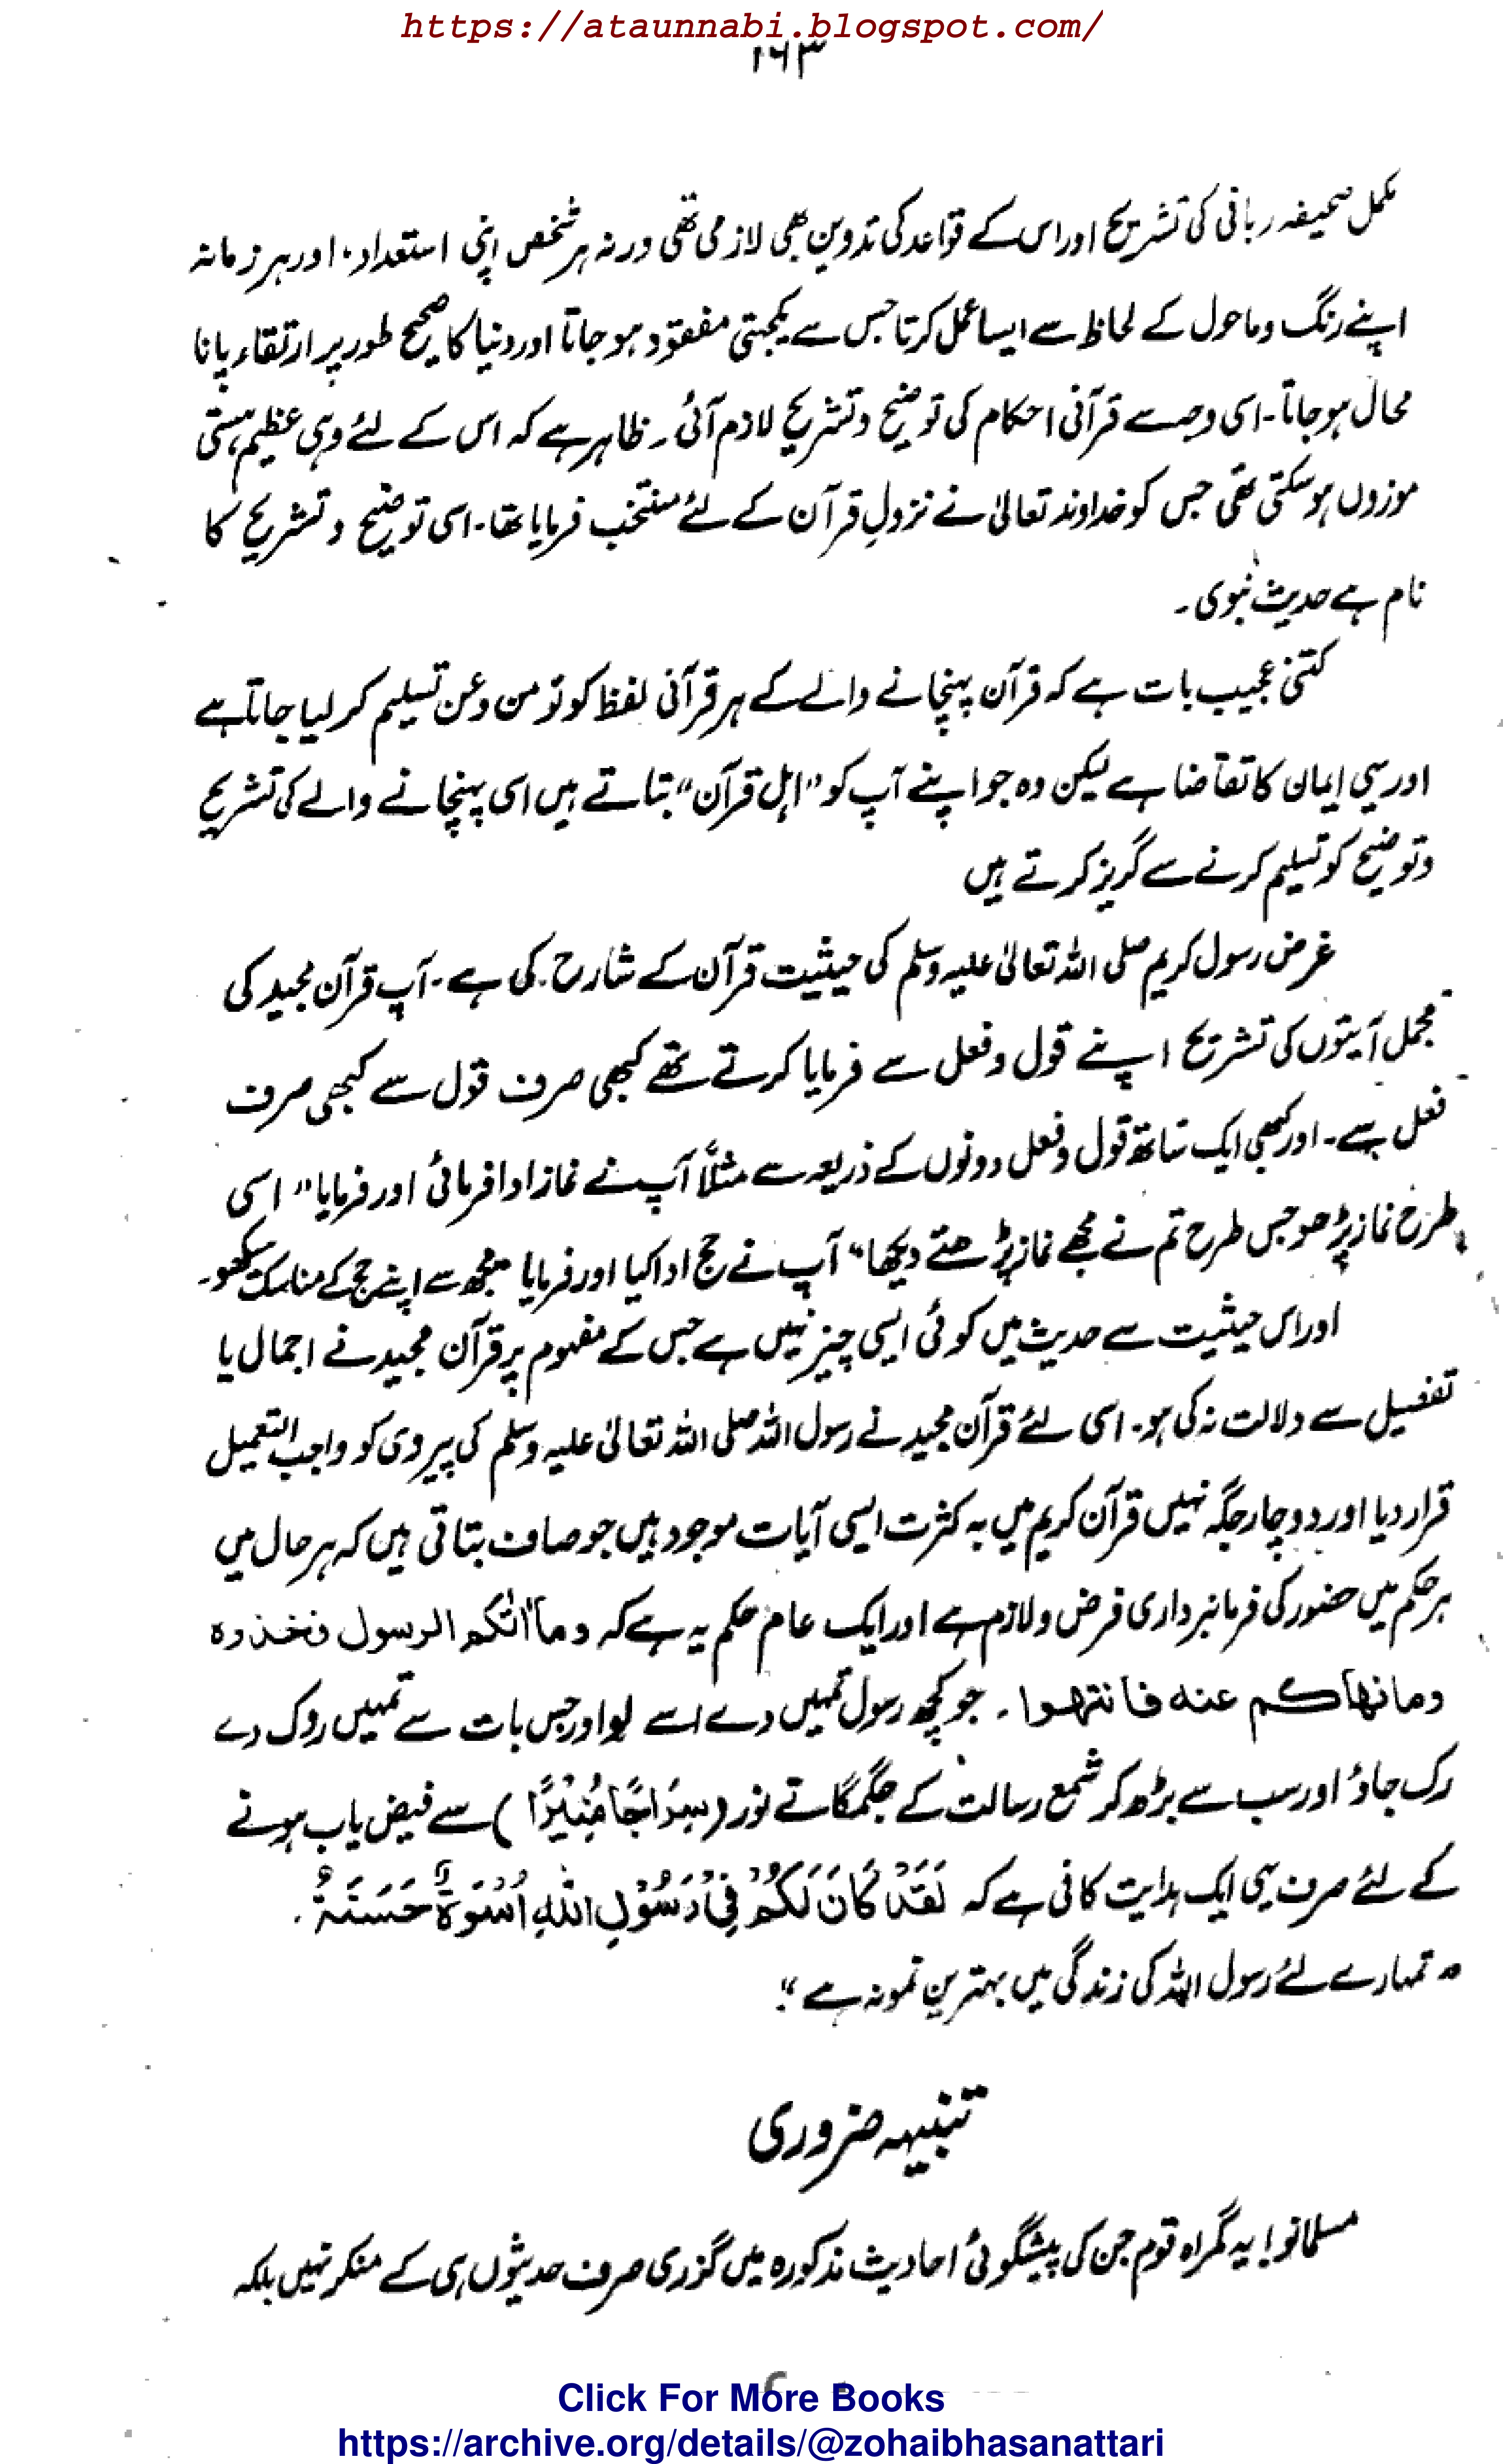 https://ataunnabi.blogspot.com/
۱۶۳
مکمل صحیفہ ربانی کی تشریح اور اس کے قواعد کی تدوین بھی لازمی تھی ورنہ ہر شخص اپنی استعداد، اور ہر زمانہ
اپنے رنگ و ماحول کے لحاظ سے ایسا عمل کرتا جس سے یکجہتی مفقود ہو جاتا اور دنیا کا صحیح طور پر ارتقاء پانا
محال ہو جاتا۔ اسی وجہ سے قرآنی احکام کی توضیح و تشریح لازم آئی۔ ظاہر ہے کہ اس کے لئے وہی عظیم ہستی
موزوں ہو سکتی تھی جس کو خداوند تعالیٰ نے نزولِ قرآن کے لئے منتخب فرمایا تھا۔ اسی توضیح و تشریح کا
نام ہے حدیث نبوی۔
کتنی عجیب بات ہے کہ قرآن پہنچانے والے کے ہر قرآنی لفظ کو تو من و عن تسلیم کر لیا جاتا ہے
اور یہی ایمان کا تقاضا ہے لیکن وہ جو اپنے آپ کو "اہل قرآن" بتاتے ہیں اسی پہنچانے والے کی تشریح
و توضیح کو تسلیم کرنے سے گریز کرتے ہیں
غرض رسول کریم صلی اللہ تعالیٰ علیہ وسلم کی حیثیت قرآن کے شارح کی ہے۔ آپ قرآن مجید کی
مجمل آیتوں کی تشریح اپنے قول و فعل سے فرمایا کرتے تھے کبھی صرف قول سے کبھی صرف
فعل سے۔ اور کبھی ایک ساتھ قول و فعل دونوں کے ذریعہ سے مثلاً آپ نے نماز ادا فرمائی اور فرمایا" اسی
طرح نماز پڑھو جس طرح تم نے مجھے نماز پڑھتے دیکھا" آپ نے حج ادا کیا اور فرمایا "مجھ سے اپنے حج کے مناسک سیکھو۔
اور اس حیثیت سے حدیث میں کوئی ایسی چیز نہیں ہے جس کے مفہوم پر قرآن مجید نے اجمال یا
تفصیل سے دلالت نہ کی ہو۔ اسی لئے قرآن مجید نے رسول اللہ صلی اللہ تعالیٰ علیہ وسلم کی پیروی کو واجب التعمیل
قرار دیا اور دو چار جگہ نہیں قرآن کریم میں بہ کثرت ایسی آیات موجود ہیں جو صاف بتاتی ہیں کہ ہر حال میں
ہر حکم میں حضور کی فرمانبرداری فرض و لازم ہے اور ایک عام حکم یہ ہے کہ وماآتٰکم الرسول فخذوہ
ومانھاکم عنہ فانتھوا۔ جو کچھ رسول تمہیں دے اسے لو اور جس بات سے تمہیں روک دے
رک جاؤ اور سب سے بڑھ کر شمع رسالت کے جگمگاتے نور (سِرَاجًا مُّنِیْرًا) سے فیض یاب ہونے
کے لئے صرف یہی ایک ہدایت کافی ہے کہ لَقَدْ کَانَ لَکُمْ فِیْ رَسُوْلِ اللّٰہِ اُسْوَۃٌ حَسَنَۃٌ۔
"تمہارے لئے رسول اللہ کی زندگی میں بہترین نمونہ ہے"۔
تنبیہہ ضروری
مسلمانو! یہ گمراہ قوم جن کی پیشگوئی احادیث مذکورہ میں گزری صرف حدیثوں ہی کے منکر نہیں بلکہ
Click For More Books
https://archive.org/details/@zohaibhasanattari